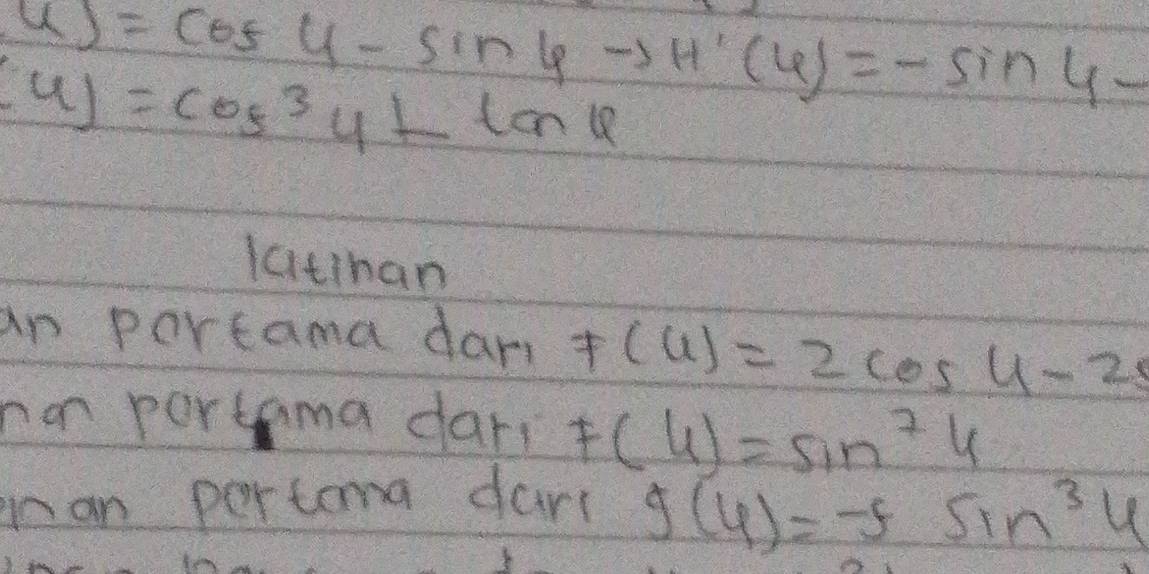 u) = cos u - sin u → H'(u) = - sin u -
u) = cos³ u + tan u
latihan
an pertama dari f(u) = 2 cos u - 2s
nan pertama dari f(u) = sin⁷ u
nan pertama dari g(u) = -5 sin³ u